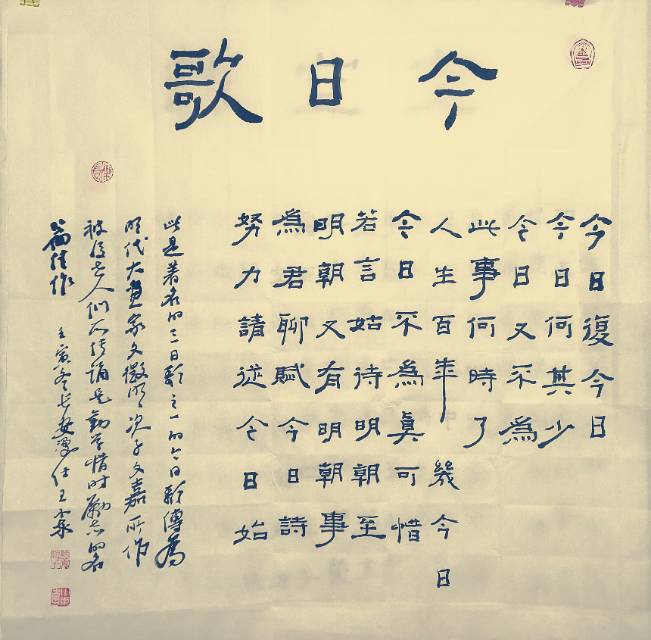 今日歌
今日復今日
今日何其少
今日又不為
此事何時了
人生百年幾今日
今日不為真可惜
若言姑待明朝至
明朝又有明朝事
為君聊賦今日詩
努力請從今日始
此是著名的三日歌之一的今日歌傳為
明代大畫家文徵明次子文嘉所作
被後世人們所傳誦是勤學惜時勵志的名
篇佳作
壬寅冬長安